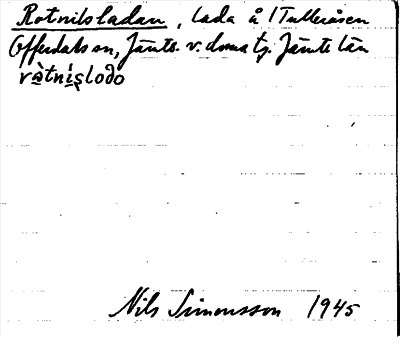 Rotnilsladan, lada å 1 Tulleråsen
Offerdals sn, Jämts. v. doms tg. Jämte län
ràtníʂloðo
Nils Simonsson 1945